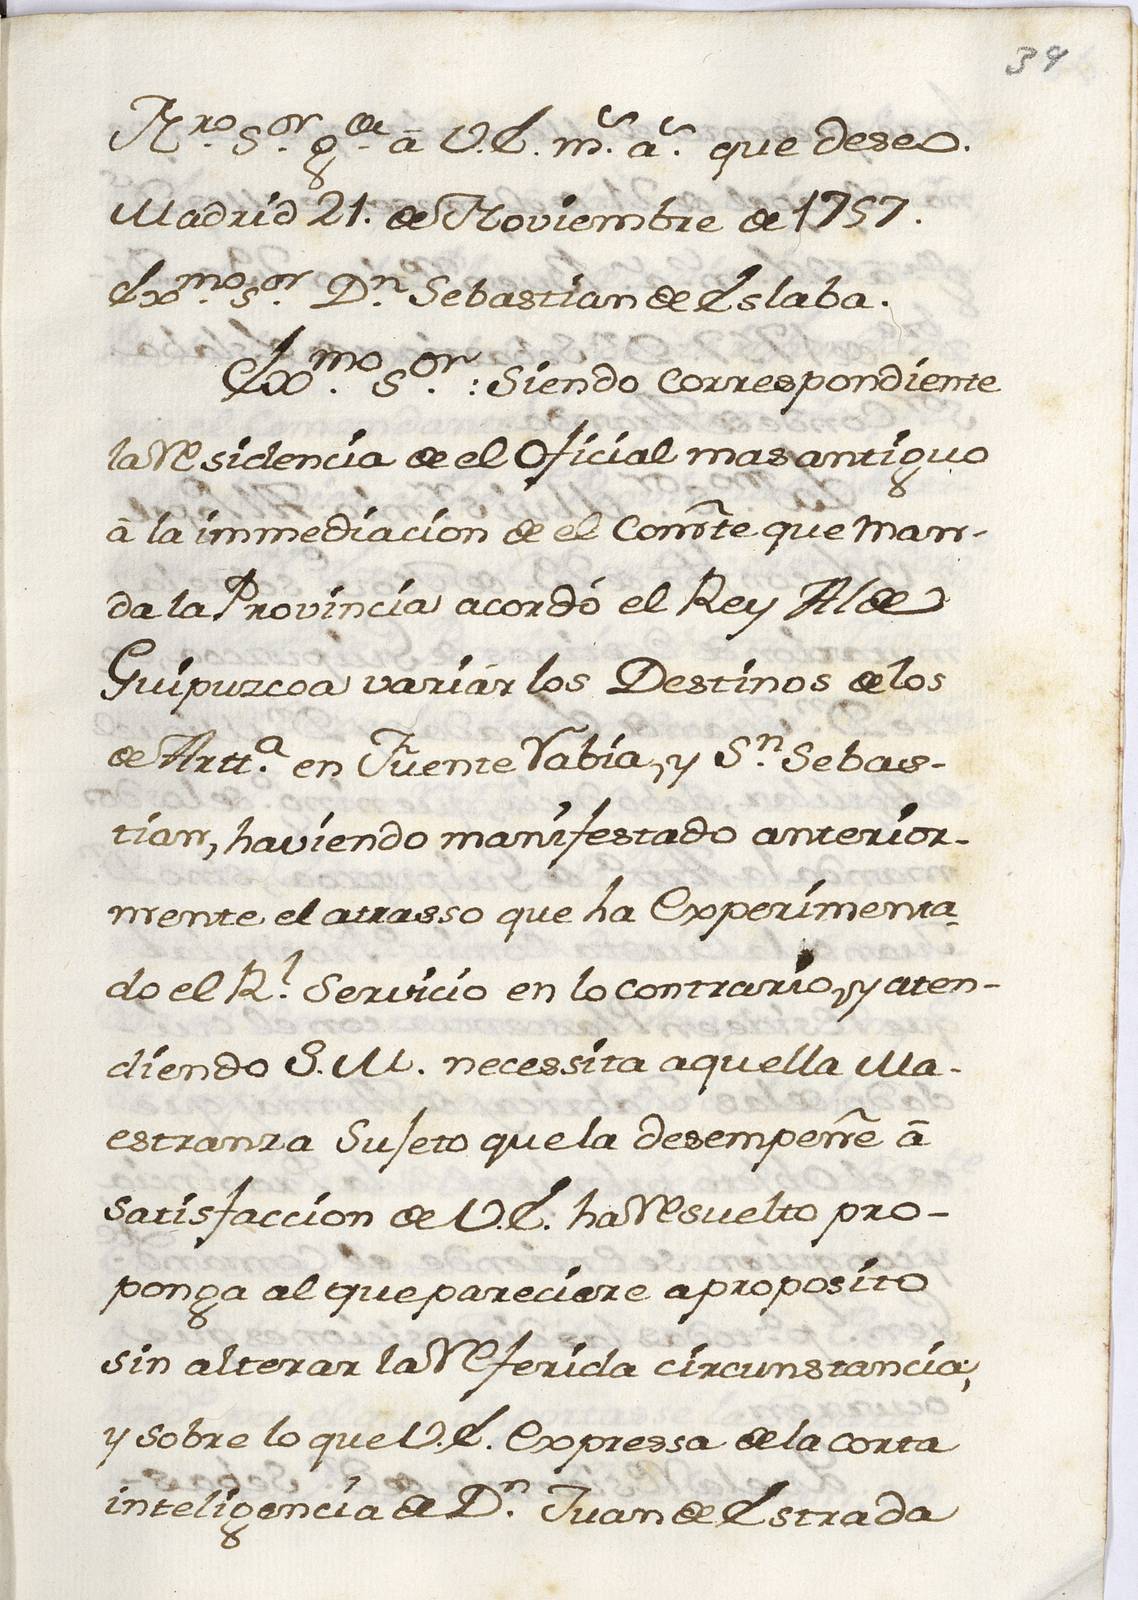 39
Nro. Sor. gde. â V.E. ms. as. que deseo.
Madrid 21. de Noviembre de 1757.
Exmo. Sor. Dn. Sebastian de Eslaba.
Exmo. Sor.: Siendo correspondiente
la Residencia de el Oficial mas antiguo
â la immediacion de el Comte que man-
da la Provincia acordó el Rey Al de
Guipuzcoa variár los Destinos de los
de Artta. en Fuente Rabia, y Sn. Sebas-
tian, haviendo manifestado anterior-
mente el atrasso que ha Experimenta-
do el Rl. Servicio en lo contrario, y aten-
diendo S.M. necessita aquella Ma-
estranza Sujeto que la desempeñe â
satisfaccion de V.E. ha Resuelto pro-
ponga al que pareciere aproposito
sin alterar la Referida circunstancia,
y sobre lo que V.E. Expressa de la corta
inteligencia de Dn. Juan de Estrada